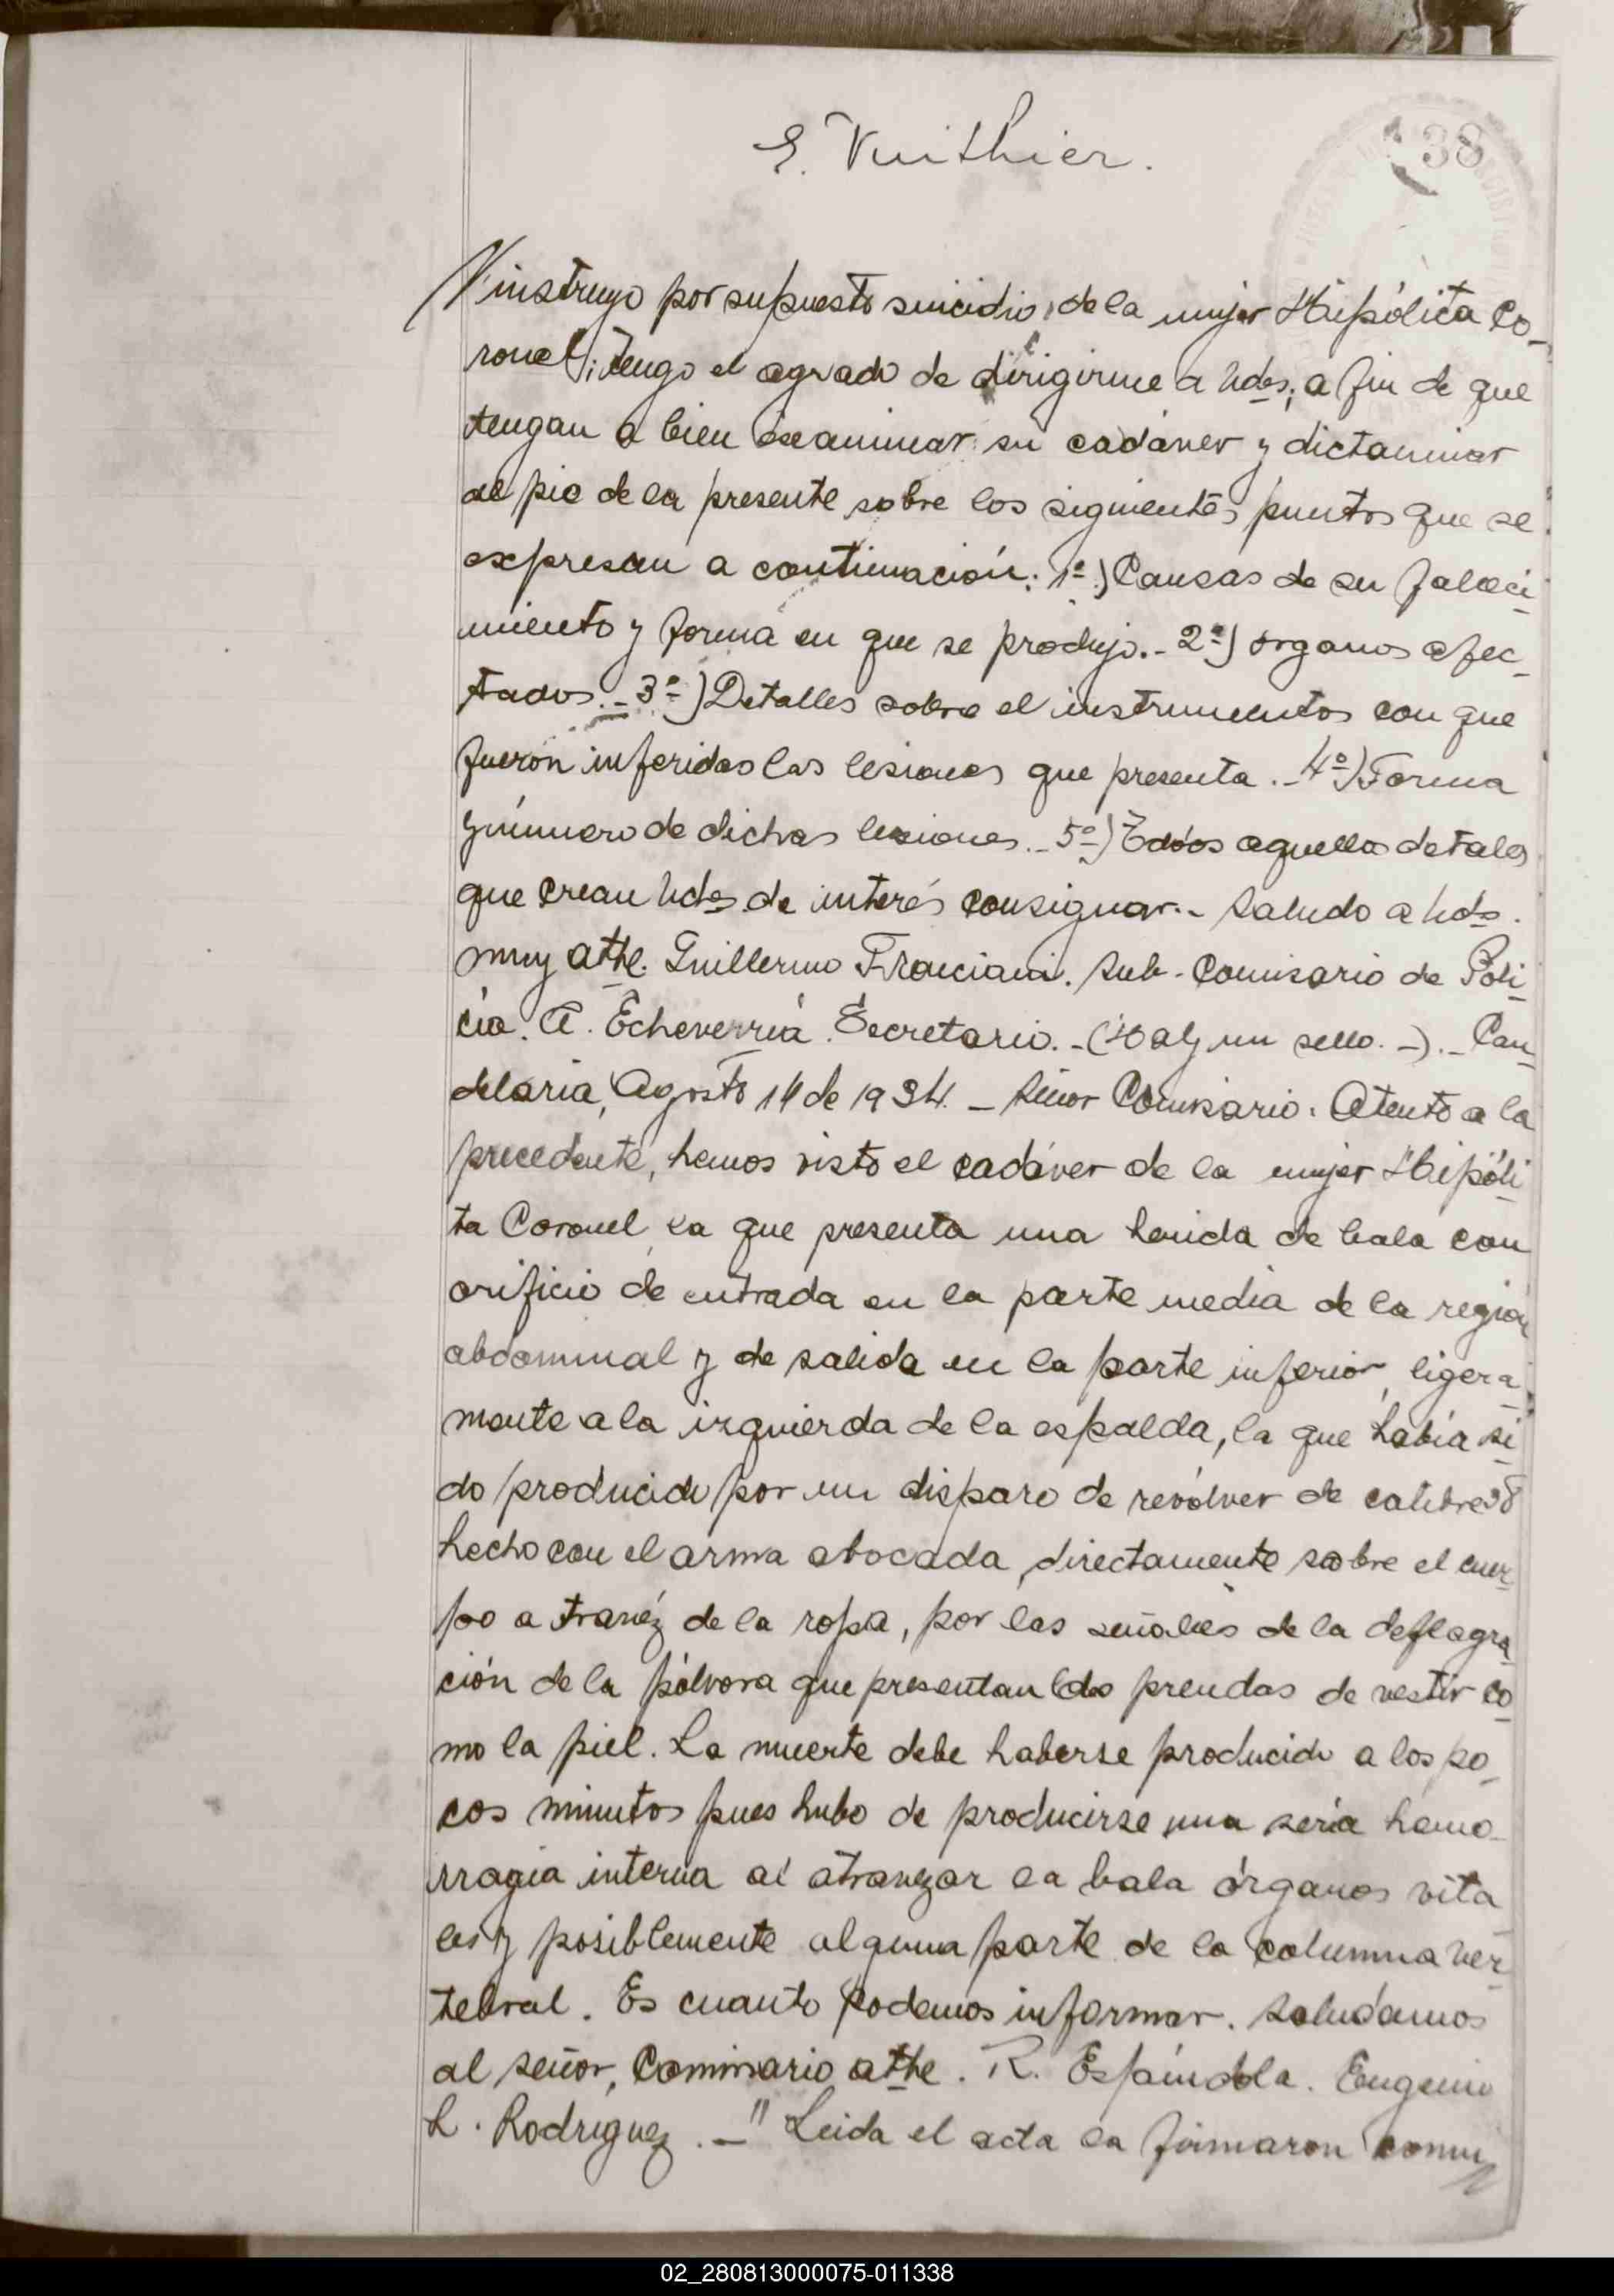 E. Vuithier.
38
instruyo por supuesto suicidio, de la mujer Hipólita Co-
ronel; Tengo el agrado de dirigirme a Uds, a fin de que
tengan a bien examinar su cadáver y dictaminar
al pie de la presente sobre los siguientes puntos que se
expresan a continuación: 1º) Causas de su faleci-
miento y forma en que se produjo.- 2º) organos afec-
tados.- 3º) Detalles sobre el instrumentos con que
fueron inferidas las lesiones que presenta.- 4º) Forma
y número de dichas lesiones.- 5º) Todos aquellos detales
que crean Uds. de interés consignar.- Saludo a Uds.
muy atte. Guillermo Franciani. Sub-Comisario de Poli-
cía. A. Echeverría. Secretario.-(Hay un sello.-).- Can-
delaria, Agosto 14 de 1934.- Señor Comisario: Atento a la
precedente, hemos visto el cadáver de la mujer Hipóli-
ta Coronel, la que presenta una herida de bala con
orificio de entrada en la parte media de la región
abdominal y de salida en la parte inferior, ligera-
mente a la izquierda de la espalda, la que había si-
do producido por un disparo de revólver de calibre 38
hecho con el arma abocada, directamente sobre el cuer-
po a travéz de la ropa, por las señales de la deflagra-
ción de la pólvora que presentan las prendas de vestir co-
mo la piel. La muerte debe haberse producido a los po-
cos minutos pues hubo de producirse una seria hemo-
rragia interna al atravezar la bala órganos vita-
les y posiblemente alguna parte de la columna ver-
tebral. Es cuanto podemos informar. Saludamos
al señor, Comisario atte. R. Espíndola. Eugenio
L. Rodríguez.-" Leida el acta la firmaron conmi
02_280813000075-011338